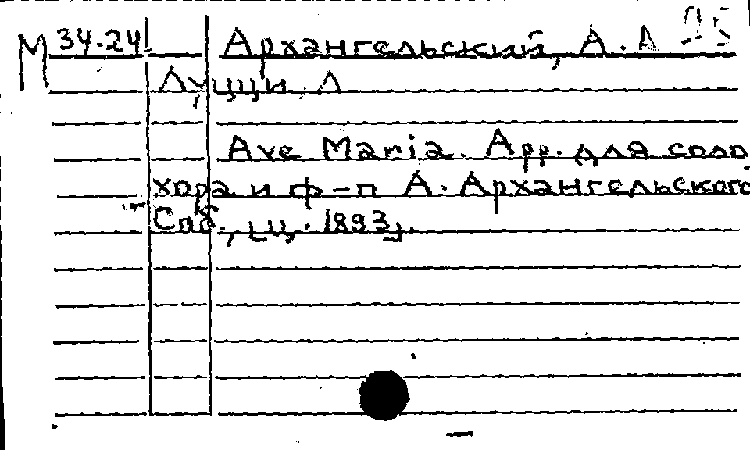 М 34-24 Архангельский, А. А
Луцци, Л
Ave Maria. Арр. для соло,
хора и ф-п А. Архангельского
Спб., ц. 1893].